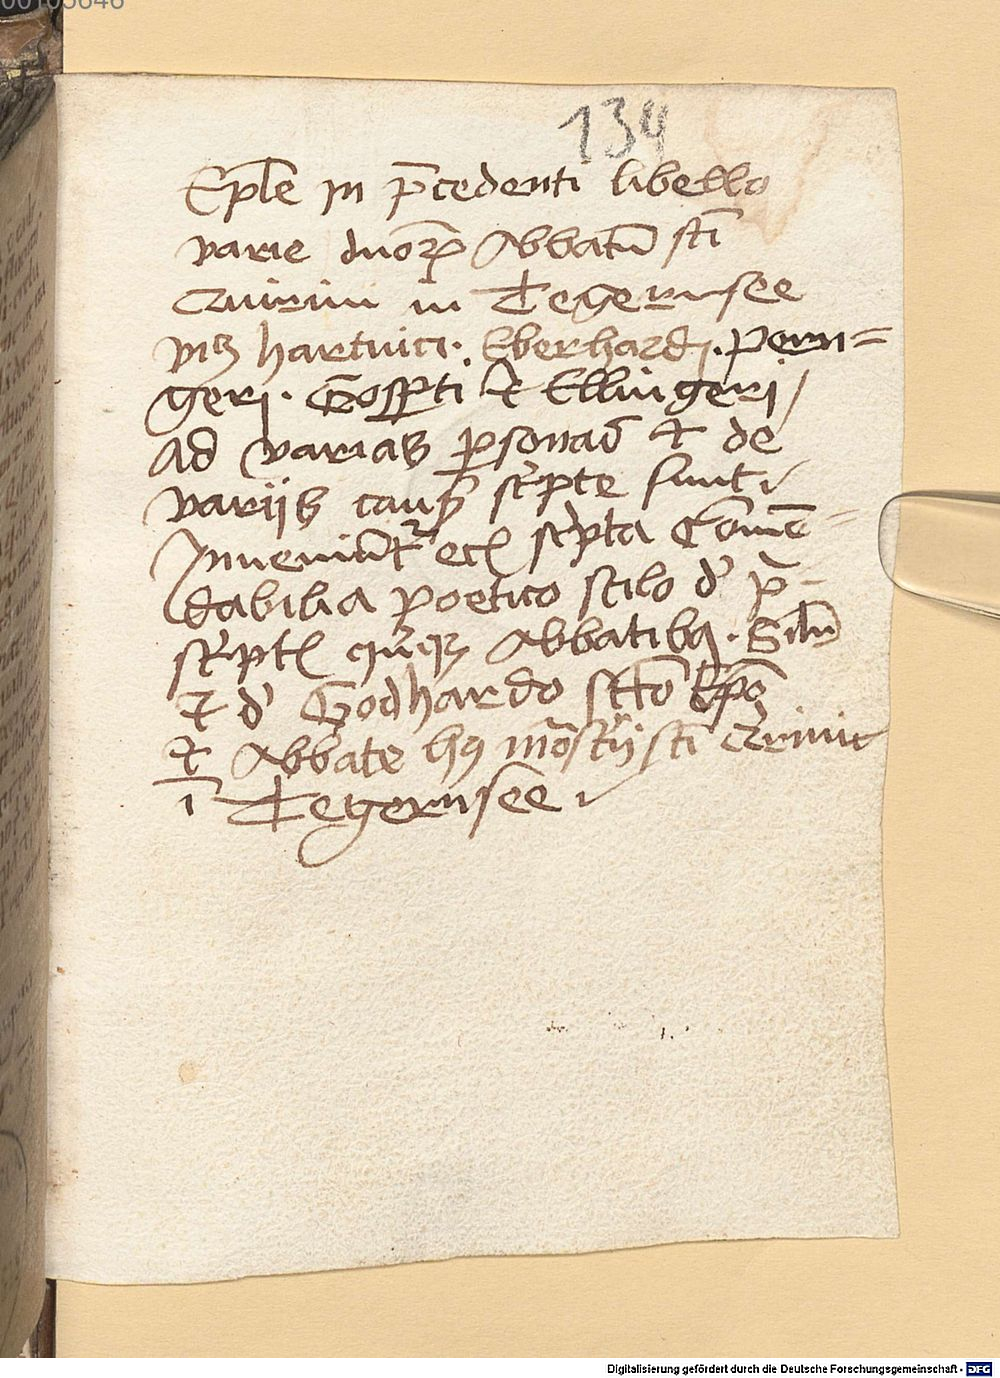 00105646
134
Ep̅le in p̅cedenti libello
varie duoꝝ Abbatū sc̅ti
Quirini in Tegernsee
viꝫ hartvici. Eberhardi. Peri=
geri. Gosp̅ti et Ellingeri
Ad varias ꝑsonas et de
varijs caus̅ sc'pte sunt
Inveniūt' ec̅ sc'pta Com̄e=
dabilia poetico stilo d' p̅=
sc'pt̅ quiqꝫ Abbatibꝫ. Sil̅r
et d' Godhardo sc̅to Ep̅o
et Abbate hꝰ mōst'ij sc̅ti Quirini
ī Tegernsee
Digitalisierung gefördert durch die Deutsche Forschungsgemeinschaft - DFG